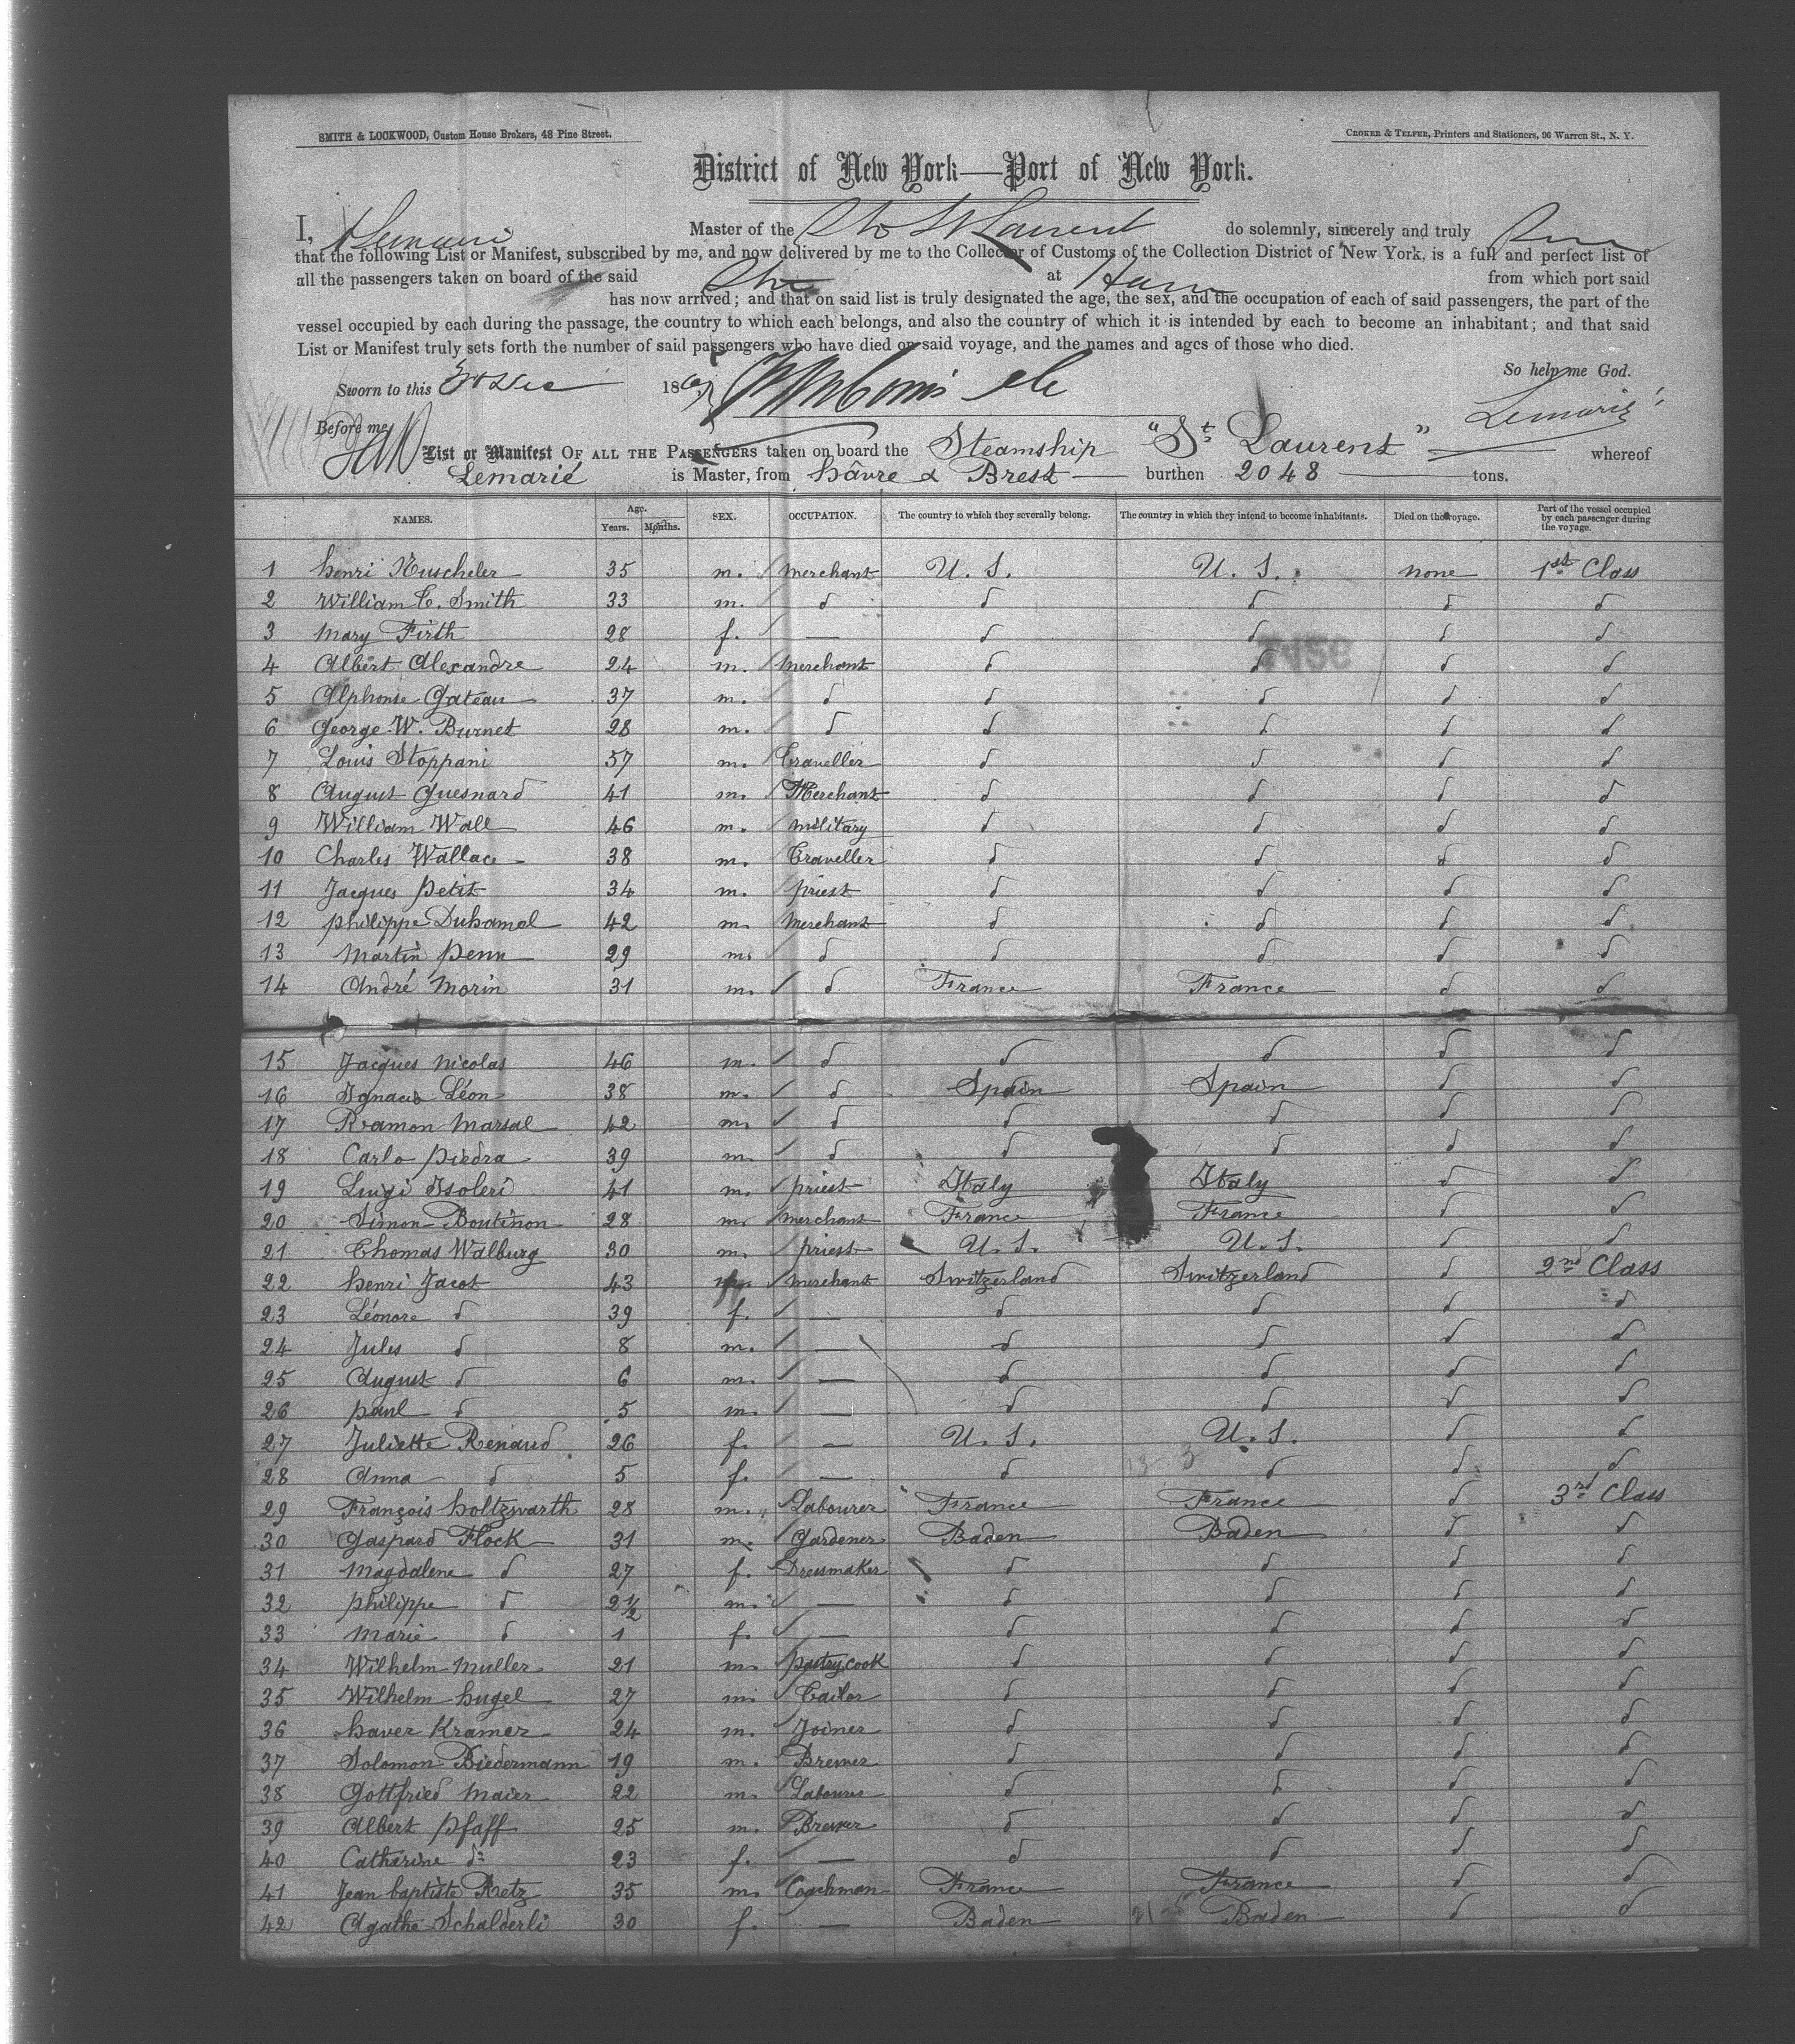 SMITH & LOCKWOOD, Custom House Brokers, 48 Pine Street.
CROKER & TELFER, Printers and Stationers, 96 Warren St., N. Y.
District of New York—Port of New York.
I, Lemarié Master of the St Laurent do solemnly, sincerely and truly
that the following List or Manifest, subscribed by me, and now delivered by me to the Collector of Customs of the Collection District of New York, is a full and perfect list of
all the passengers taken on board of the said at Havre from which port said
has now arrived; and that on said list is truly designated the age, the sex, and the occupation of each of said passengers, the part of the
vessel occupied by each during the passage, the country to which each belongs, and also the country of which it is intended by each to become an inhabitant; and that said
List or Manifest truly sets forth the number of said passengers who have died on said voyage, and the names and ages of those who died.
So help me God.
Sworn to this 186
Lemarié
Before me
List or Manifest OF ALL THE PASSENGERS taken on board the Steamship "St Laurent" whereof
Lemarié is Master, from hâvre & Brest burthen 2048 tons.
NAMES. Age. Years. Months. SEX. OCCUPATION. The country to which they severally belong. The country in which they intend to become inhabitants. Died on the voyage. Part of the vessel occupied by each passenger during the voyage.
1 henri Nuscheler 35 m. merchant U. S. U. S. none 1st Class
2 William C. Smith 33 m. d d d d d
3 Mary Firth 28 f. — d d d d
4 Albert Alexandre 24 m. merchant d d d d
5 Alphonse Gateau 37 m. d d d d d
6 George W. Burnet 28 m. d d d d d
7 Louis Stoppani 57 m. Traveller d d d d
8 August Guesnard 41 m. Merchant d d d d
9 William Wall 46 m. military d d d d
10 Charles Wallace 38 m. Traveller d d d d
11 Jacques Petit 34 m. priest d d d d
12 philippe Duhamel 42 m. merchant d d d d
13 Martin penn 29 m. d d d d d
14 André Morin 31 m. d France France d d
15 Jacques Nicolas 46 m. d d d d d
16 Ignacio Léon 38 m. d Spain Spain d d
17 Ramon Marsal 42 m. d d d d d
18 Carlo piedra 39 m. d d d d d
19 Luigi Isoleri 41 m. priest Italy Italy d d
20 Simon Boutinon 28 m. merchant France France d d
21 Thomas Walburg 30 m. priest U. S. U. S. d d
22 henri Jacot 43 m. merchant Switzerland Switzerland d 2nd Class
23 Léonore d 39 f. — d d d d
24 Jules d 8 m. — d d d d
25 August d 6 m. — d d d d
26 paul d 5 m. — d d d d
27 Juliette Renaud 26 f. — U. S. U. S. d d
28 Anna d 5 f. — d d d d
29 François holtzwarth 28 m. Labourer France France d 3rd Class
30 Gaspard Flock 31 m. Gardener Baden Baden d d
31 Magdalene d 27 f. Dressmaker d d d d
32 philippe d 2 1/2 m. — d d d d
33 Marie d 1 f. — d d d d
34 Wilhelm Muller 21 m. pastry cook d d d d
35 Wilhelm hugel 27 m. Tailor d d d d
36 haver Kramer 24 m. Joiner d d d d
37 Solomon Biedermann 19 m. Brewer d d d d
38 Gottfried Maier 22 m. Labourer d d d d
39 Albert Pfaff 25 m. Brewer d d d d
40 Catherine do 23 f. — d d d d
41 Jean baptiste Retz 35 m. Coachman France France d d
42 Agathe Schalderli 30 f. — Baden Baden d d